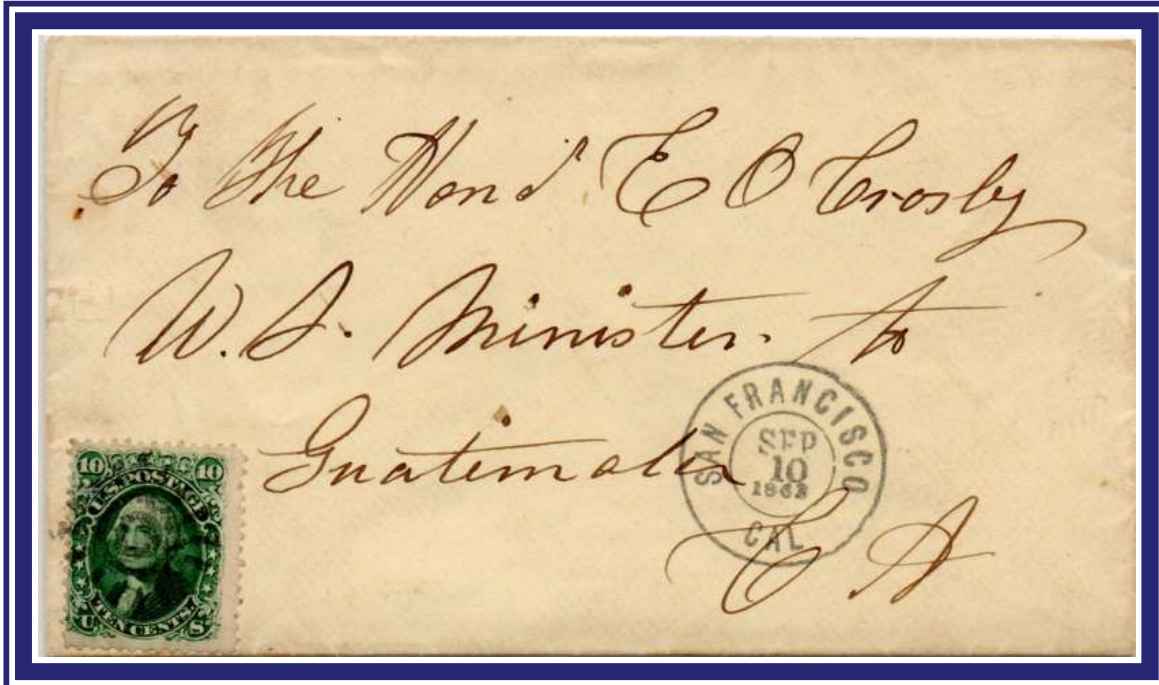 To the Hond E O Crosby
U.S. Minister to
Guatemala
C A
SAN FRANCISCO
SEP
10
1862
CAL
10 10
U.S. POSTAGE
TEN CENTS
U S